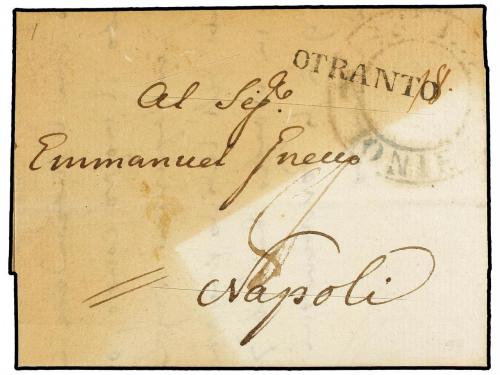 OTRANTO
18.
Al Sigr.
Emmanuel
Napoli